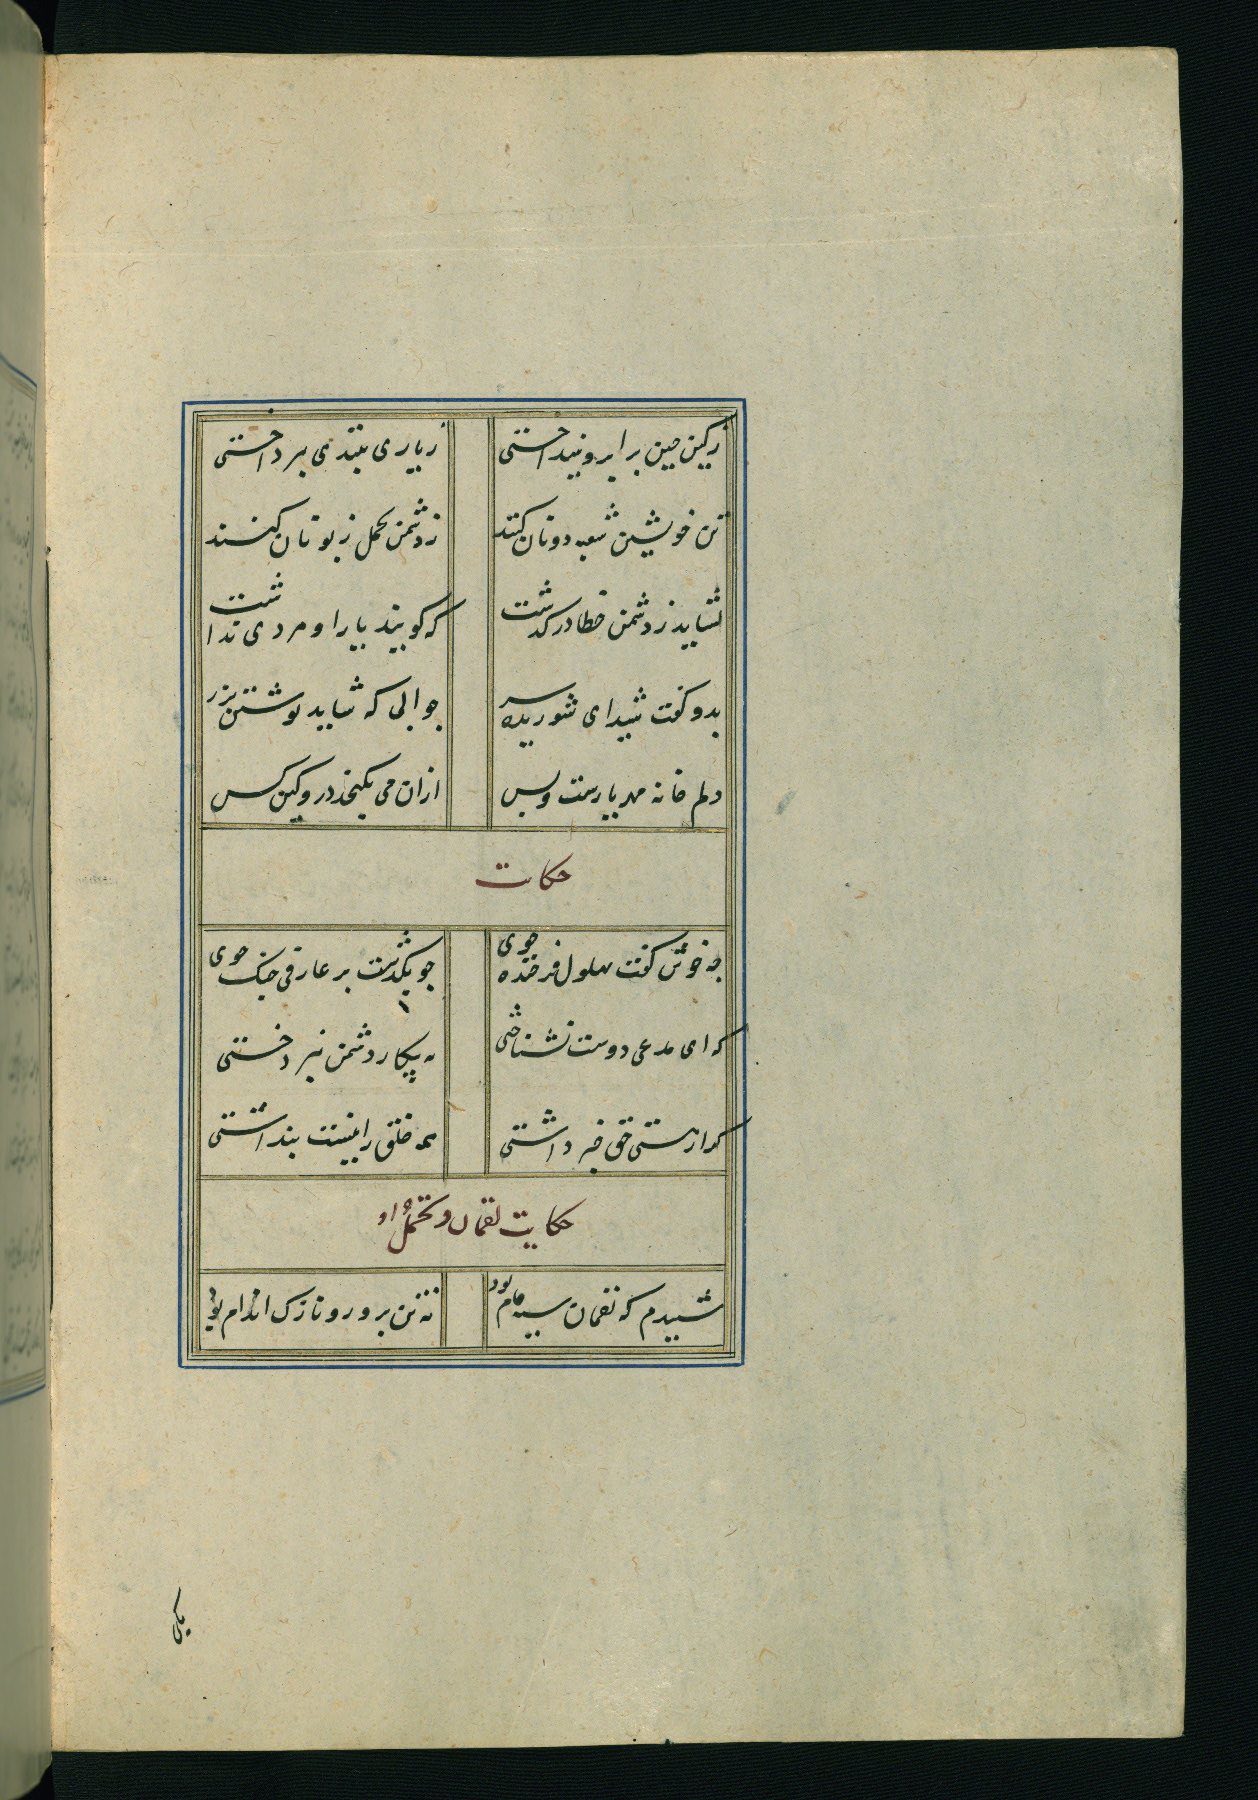 ز کین چین بر ابرو نینداختی ز یاری بتندی نپرداختی
تن خویشتن سغبه دونان کنند ز دشمن تحمل زبونان کنند
نشاید ز دشمن خطا درگذشت که گویند یارا و مردی نداشت
بدو گفت شیدای شوریده سر جوابی که شاید نوشتن بزر
دلم خانه مهر یارست و بس ازان می نگنجد درو کین کس
حکات
چه خوش گفت بهلول فرخنده خوی چو بگذشت بر عارفی جنک جوی
که ای مدعی دوست نشناختی به پیکار دشمن نپرداختی
گر از هستی حق خبر داشتی همه خلق را نیست پنداشتی
حکایت لقمان و تحمل او
شنیدم که لقمان سیه فام بود نه تن پرور و نازک اندام بود
یکی